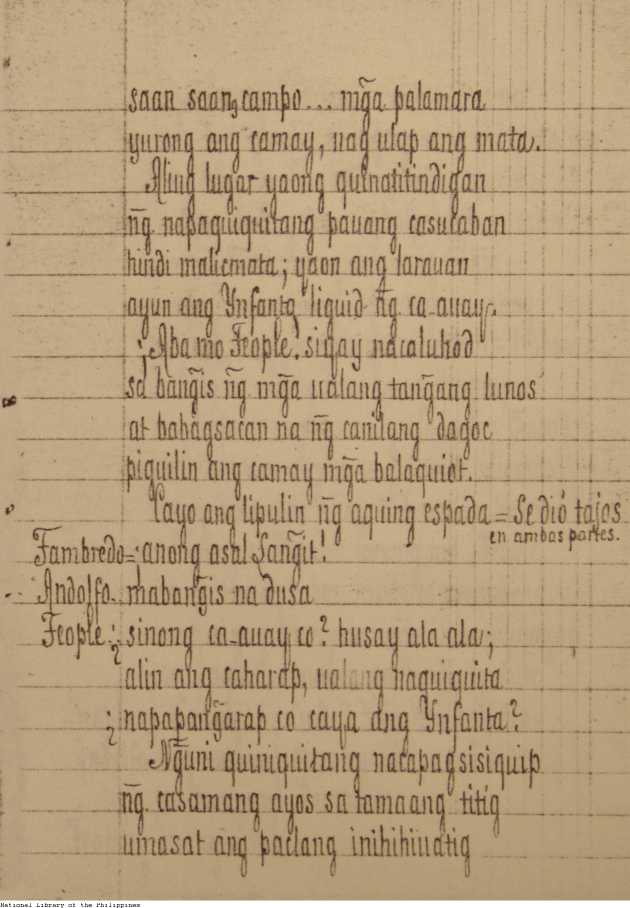 saan saang campo... mg̃a palamara
yurong ang camay, nag ulap ang mata.
Aling lugar yaong quinatitindigan
ñg napaguiquitang pauang casucaban
hindi malicmata; yaon ang larauan
ayun ang Ynfanta liguid ñg ca-auay.
¡Aba mo Feople! sigay nacaluhod
sa bang̃is ñg mg̃a ualang tang̃ang lunos
at babagsacan na ñg canilang dagoc
piguilin ang camay mg̃a balaquiot.
Cayo ang lipulin ñg aquing espada = Se dió tajos
en ambas partes.
Fambredo = anong asal Sang̃it!
Andolfo.. mabang̃is na dusa
Feople ¿sinong ca-auay co? husay ala ala;
alin ang caharap, ualang naguiquita
¿napapang̃arap co caya ang Ynfanta?
Ng̃uni quiniquitang nacapagsisiquip
ñg casamang ayos sa tamaang titig
umasat ang paclang inihihiuatig
National Library of the Philippines